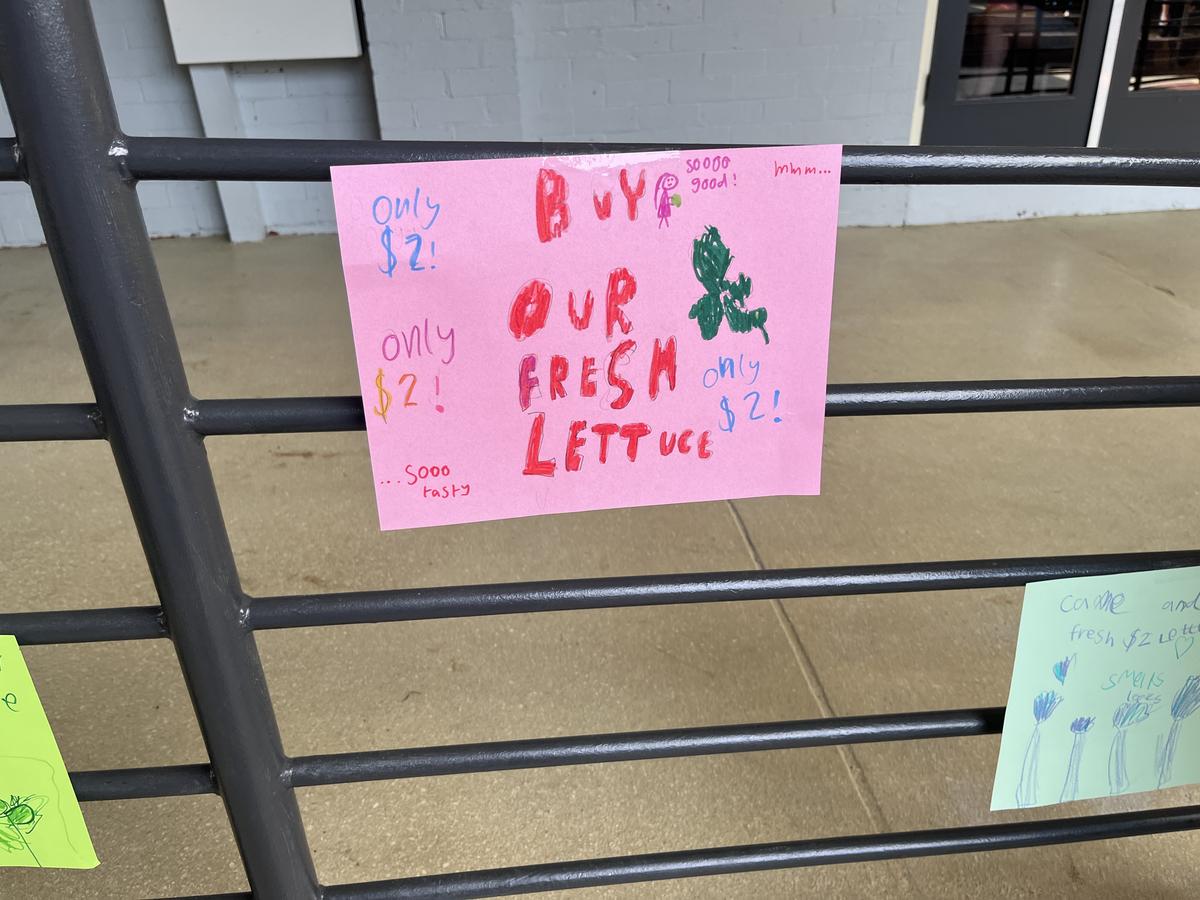 only
$2!
BUY
soooo
good!
mmm...
OUR
only
$2!
FRESH
LETTUCE
only
$2!
...Sooo
tasty
come and
fresh $2
smells
e